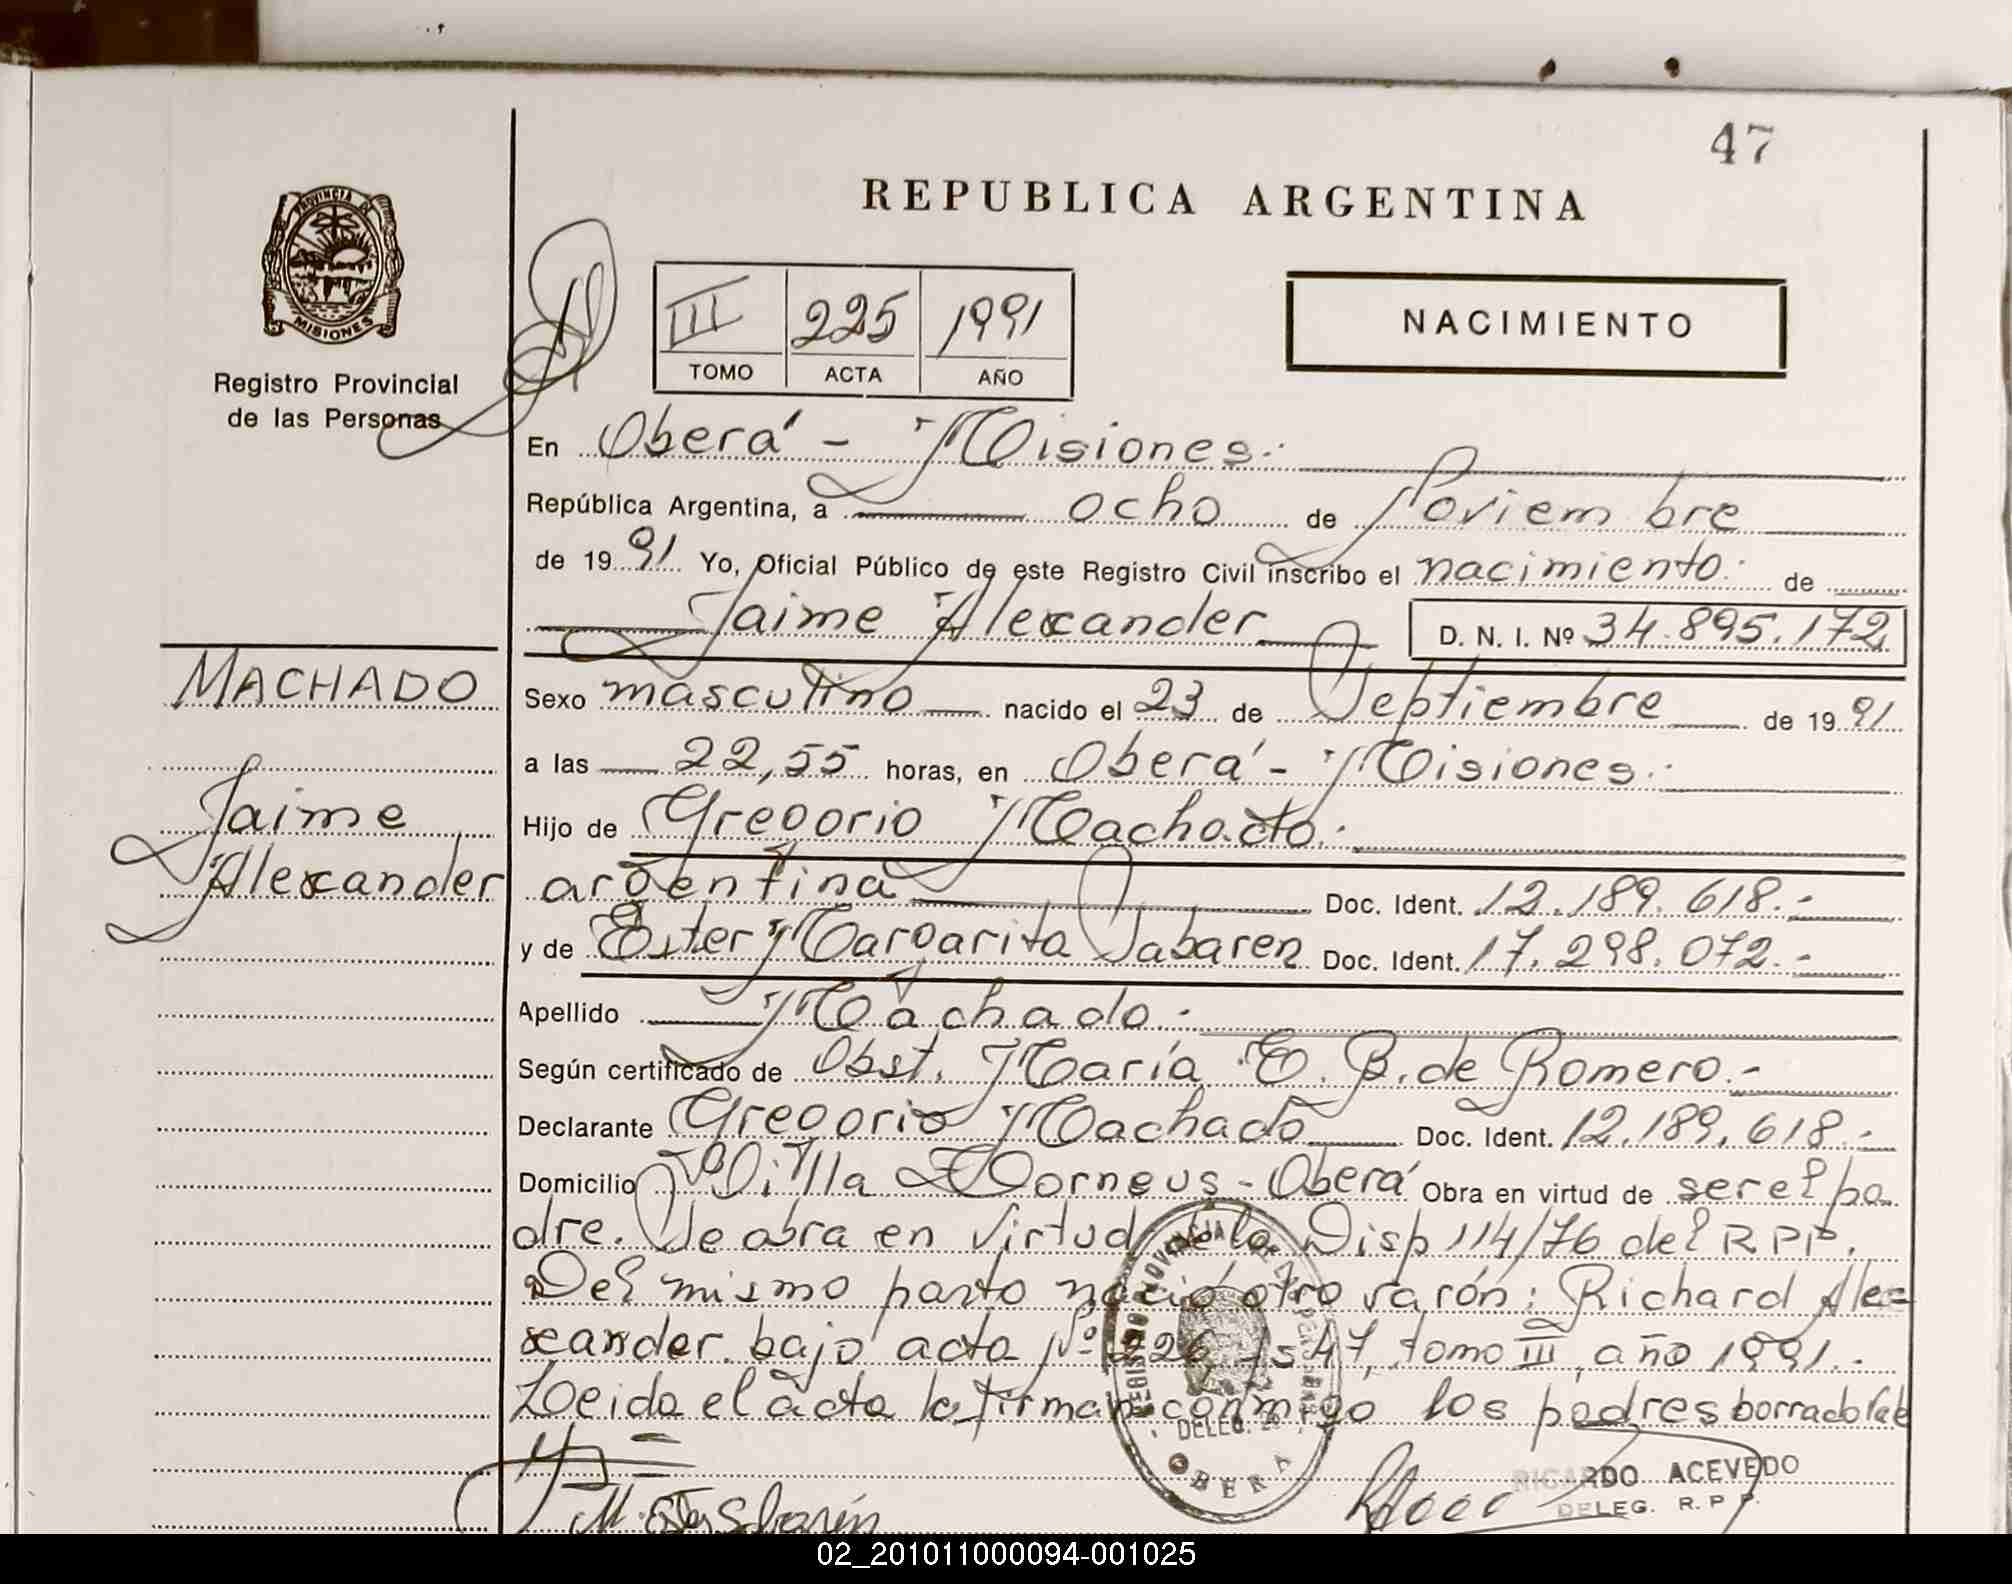 47
REPUBLICA ARGENTINA
PROVINCIA DE
MISIONES
Registro Provincial
de las Personas
III 225 1991
TOMO ACTA AÑO
NACIMIENTO
En Oberá - Misiones.
República Argentina, a ocho de Noviembre
de 1991 Yo, Oficial Público de este Registro Civil inscribo el nacimiento. de
Jaime Alexander D. N. I. Nº 34.895.172
MACHADO
Jaime
Alexander
Sexo masculino nacido el 23 de Septiembre de 1991
a las 22,55 horas, en Oberá - Misiones.
Hijo de Gregorio Machado.
argentina Doc. Ident. 12.189.618.-
y de Ester Margarita Sabaren Doc. Ident. 17.298.072.-
Apellido Machado.
Según certificado de Obst. María E. B. de Romero.-
Declarante Gregorio Machado Doc. Ident. 12.189.618.-
Domicilio Villa Dorneus - Oberá Obra en virtud de ser el pa
dre. Se obra en virtud de la Disp 114/76 del R.P.P.
Del mismo parto nació otro varón: Richard Ale=
xander bajo acta Nº 226 fs 47, tomo III, año 1991.-
Leida el acta la firman conmigo los padres borrado
DELEG.
OBERA
RICARDO ACEVEDO
DELEG. R. P. P.
02_201011000094-001025